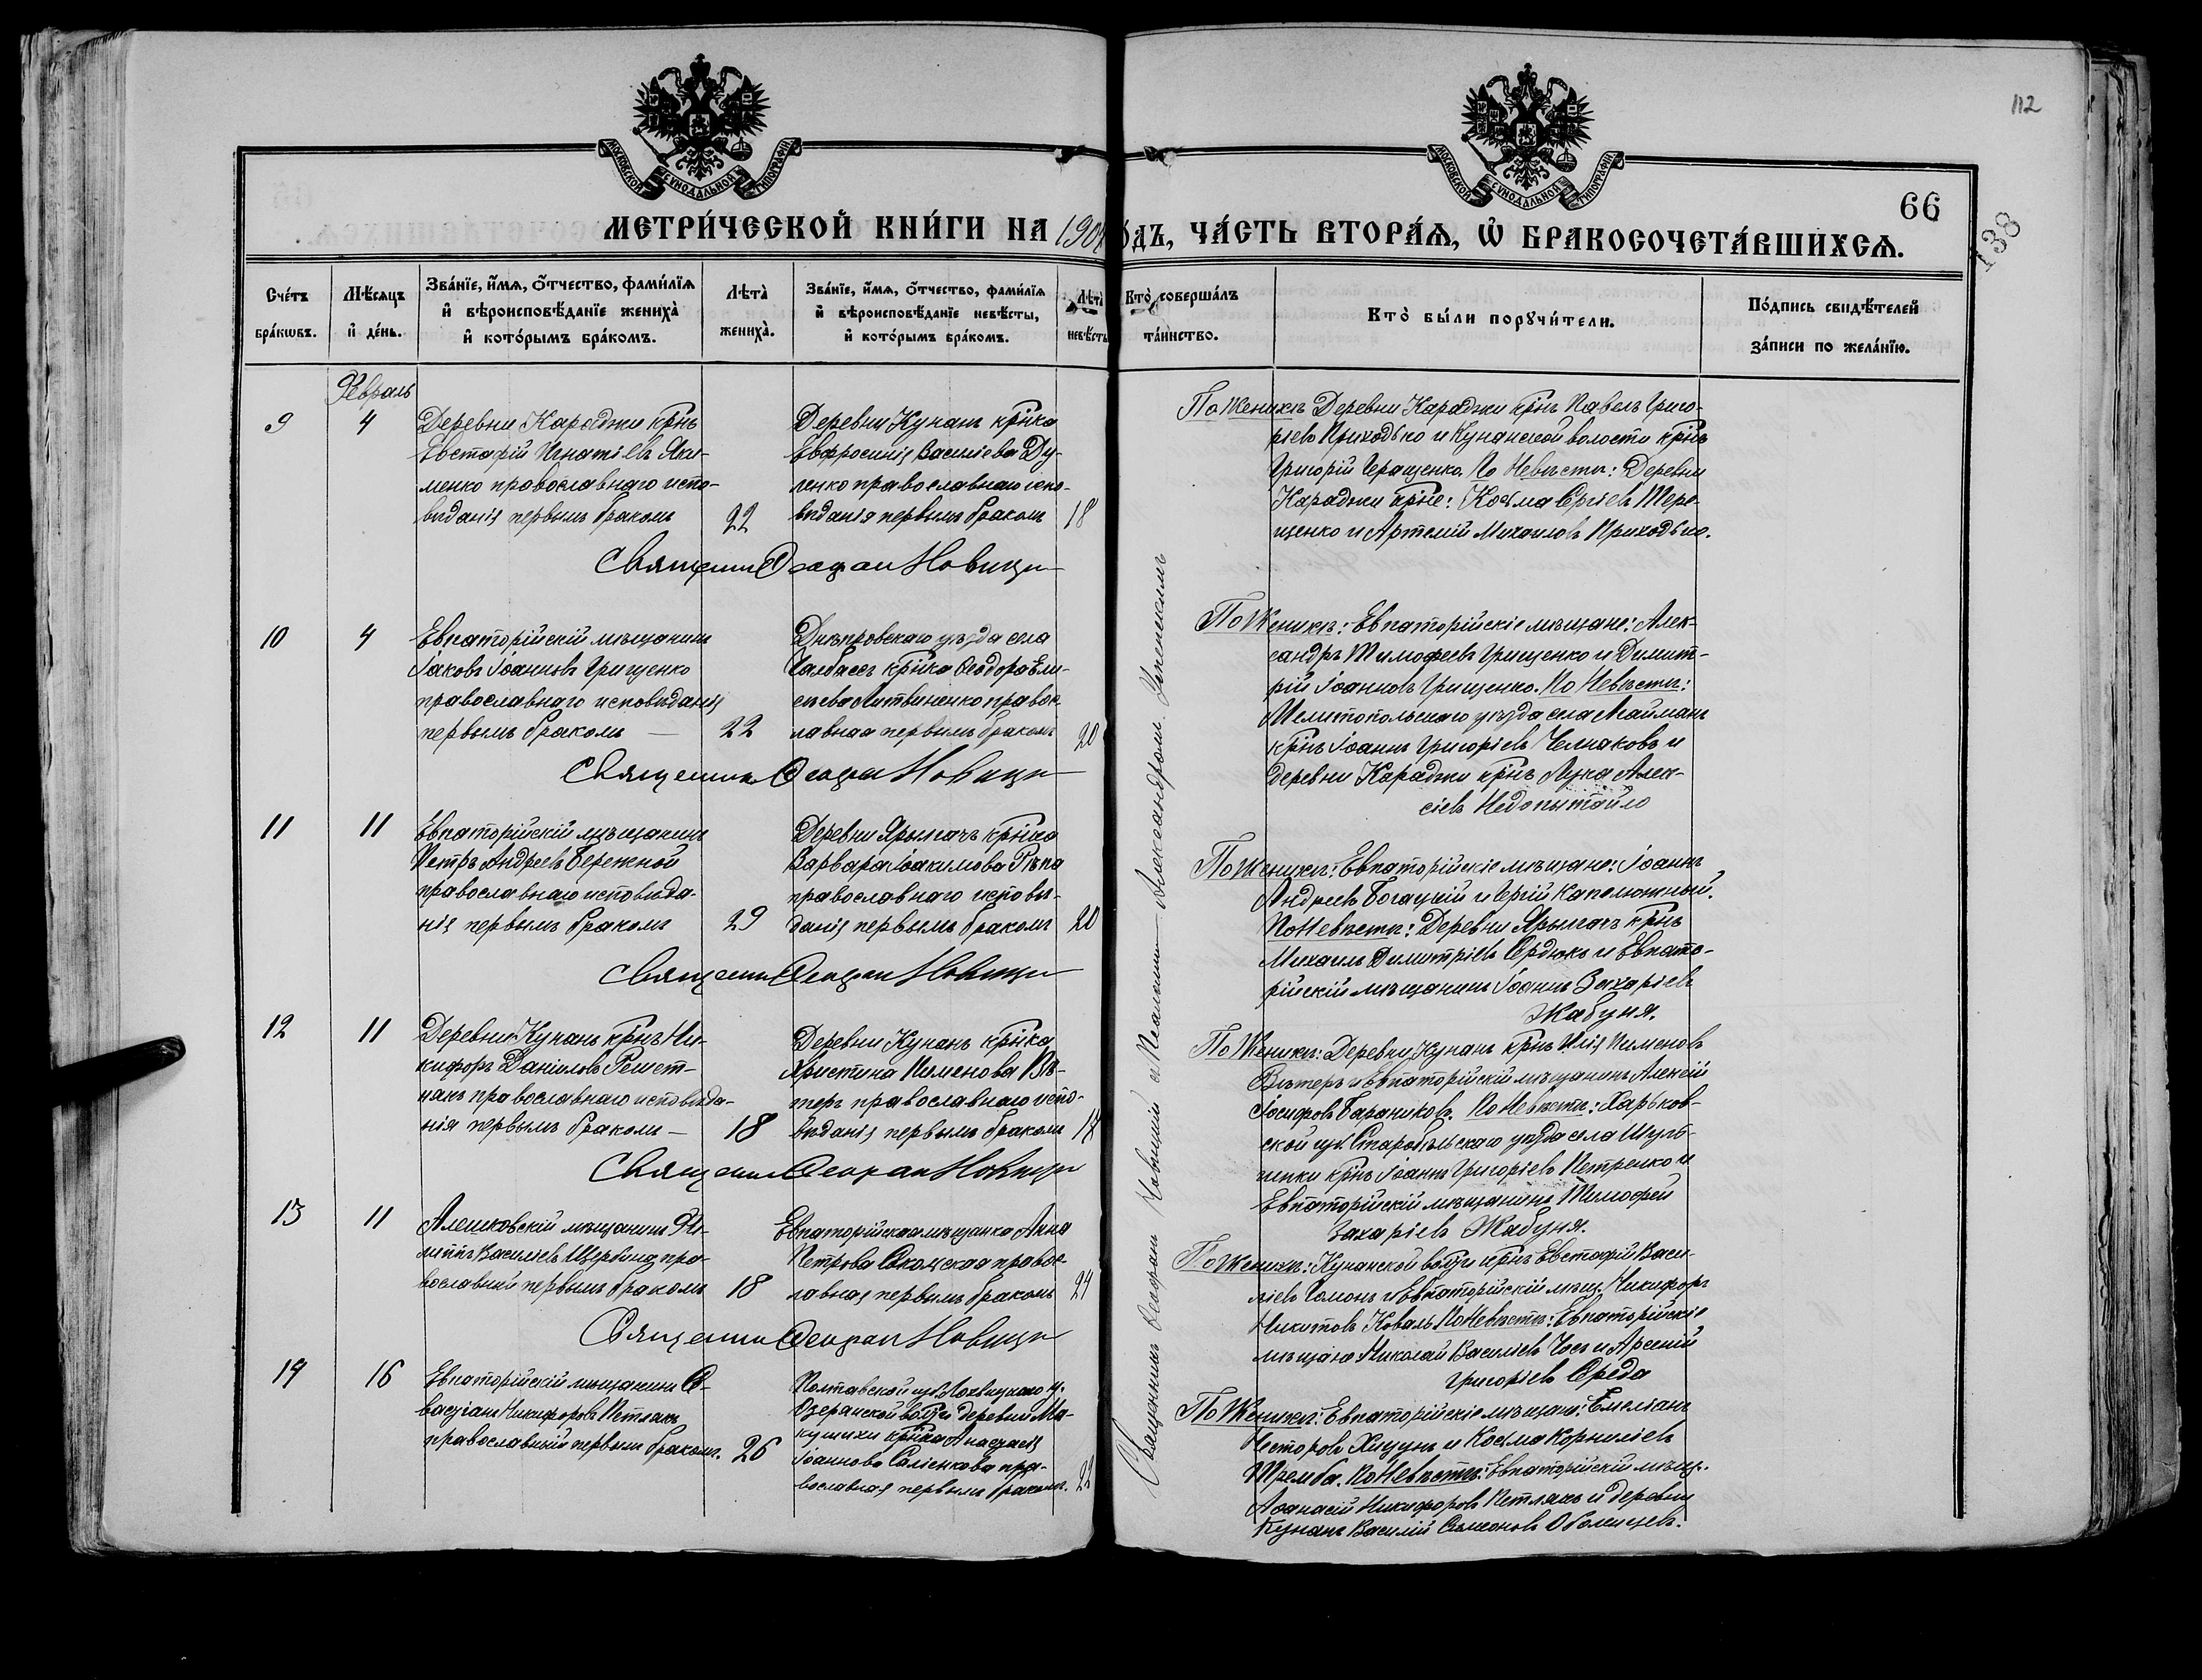 112
МОСКОВСКОЙ СУНОДАЛЬНОЙ ТИПОГРАФІИ
МОСКОВСКОЙ СУНОДАЛЬНОЙ ТИПОГРАФІИ
66
138
МЕТРИ́ЧЕСКОЙ КНИ́ГИ НА 190
О́ДЪ, ЧА́СТЬ ВТОРА́Я, Ѡ҆ БРАКОСОЧЕТА́ВШИХСЯ.
Сче́тъ бра́кωвъ.
Мѣ́сяцъ и҆ де́нь.
Зва́нїе, и҆́мя, ѻ҆́тчество, фами́лїя
и҆ вѣроисповѣ́данїе жениха̀
и҆ кото́рымъ бра́комъ.
Лѣта̀
жениха̀.
Зва́нїе, и҆́мя, ѻ҆́тчество, фами́лїя
и҆ вѣроисповѣ́данїе невѣ́сты,
и҆ кото́рымъ бра́комъ.
Лѣта̀
невѣ́сты
Кто̀ соверша́лъ
та́инство.
Кто̀ бы́ли порꙋчи́тели.
По́дпись свидѣ́телей
за́писи по жела́нїю.
Февраль
9
4
Деревни Караджи крнъ
Евстафій Игнатіевъ Яки-
менко православнаго испо-
вѣданія первымъ бракомъ
22
Деревни Кунанъ крнка
Евфросинія Василіева Ду-
ленко православнаго испо-
вѣданія первымъ бракомъ
18
По Женихѣ Деревни Караджи крнъ Павелъ Григо-
ріевъ Приходько и Кунанской волости крнъ
Григорій Геращенко. По Невѣстѣ: Деревни
Караджи крне: Косьма Сергіевъ Тере-
щенко и Артемій Михаиловъ Приходько.
Священникъ Новицкі
10
4
Евпаторійскій мѣщанинъ
Іаковъ Іоанновъ Грищенко
православнаго исповѣданія
первымъ бракомъ —
22
Днѣпровскаго уѣзда села
Чалбассъ крнка Ѳеодора Ели-
сѣева Литвиненко правос-
лавная первымъ бракомъ
20
По Женихѣ: Евпаторійскіе мѣщане: Алек-
сандръ Тимофеевъ Грищенко и Димит-
рій Іоанновъ Грищенко. По Невѣстѣ:
Мелитопольскаго уѣзда села
крнъ Іоаннъ Григоріевъ Челнаковъ и
деревни Караджи крнъ Лука Алек-
сіевъ Недопытайло
Священникъ Новицкі
11
11
Евпаторійскій мѣщанинъ
Петръ Андреевъ Бережной
православнаго исповѣда-
нія первымъ бракомъ
29
Деревни Ярылгачъ крнка
Варвара Іоакимова Рѣпа
православнаго исповѣ-
данія первымъ бракомъ
20
По Женихѣ: Евпаторійскіе мѣщане: Іоаннъ
Андреевъ Богацкій и Сергій
По Невѣстѣ: Деревни Ярылгачъ крнъ
Михаилъ Димитріевъ Сердюкъ и Евпато-
рійскій мѣщанинъ Іоаннъ Захаріевъ
Жабуня.
Священникъ Новицкі
12
11
Деревни Кунанъ крнъ Ни-
кифоръ Даніиловъ Решет-
някъ православнаго исповѣда-
нія первымъ бракомъ —
18
Деревни Кунанъ крнка
Христина Пименова Вѣ-
теръ православнаго испо-
вѣданія первымъ бракомъ
По Женихѣ: Деревни Кунанъ крнъ Илія Пименовъ
Вѣтеръ и Евпаторійскій мѣщанинъ Алексій
Іосифовъ Бараниковъ. По Невѣстѣ: Харьков-
ской губ. Старобѣльскаго уѣзда села Шуль-
гинки крнъ Іоаннъ Григоріевъ Петренко и
Евпаторійскій мѣщанинъ Тимофей
Захаріевъ Жабуня.
Священникъ Новицкі
13
11
Алешковскій мѣщанинъ Фи-
липпъ Василіевъ Щербина пра-
вославный первымъ бракомъ
18
Евпаторійская мѣщанка Анна
Петрова правос-
лавная первымъ бракомъ
24
По Женихѣ: Кунанской волости крнъ Евстафій Васи-
ліевъ и Евпаторійскій мѣщ. Никифоръ
Никитовъ Коваль По Невѣстѣ: Евпаторійскіе
мѣщане Николай Василіевъ и Арсеній
Григоріевъ Середа
Священникъ Новицкі
14
16
Евпаторійскій мѣщанинъ Се-
вастіанъ Никифоровъ Петлякъ
православный первымъ бракомъ.
26
Полтавской губ. Лохвицкаго у.
Озерянской волости деревни Ма-
кушихи крнка Анастасія
Іоаннова пра-
вославная первымъ бракомъ.
22
По Женихѣ: Евпаторійскіе мѣщане: Емеліанъ
Несторовъ и Косьма Корниліевъ
Тремба. По Невѣстѣ: Евпаторійскій мѣщ.
Аѳанасій Никифоровъ Петлякъ и деревни
Кунанъ Василій Симеоновъ
Священникъ Новицкій съ Псаломщ. Александромъ